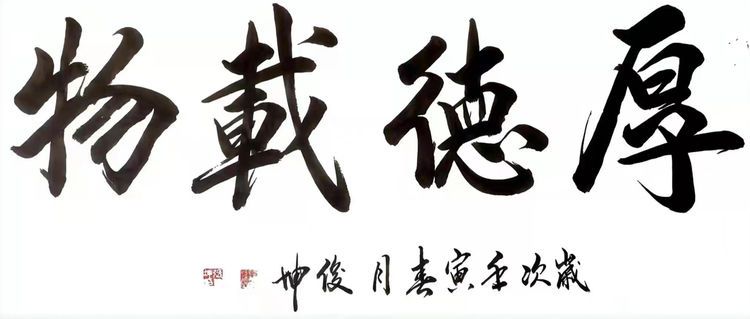 厚德載物
歲次壬寅春月俊坤